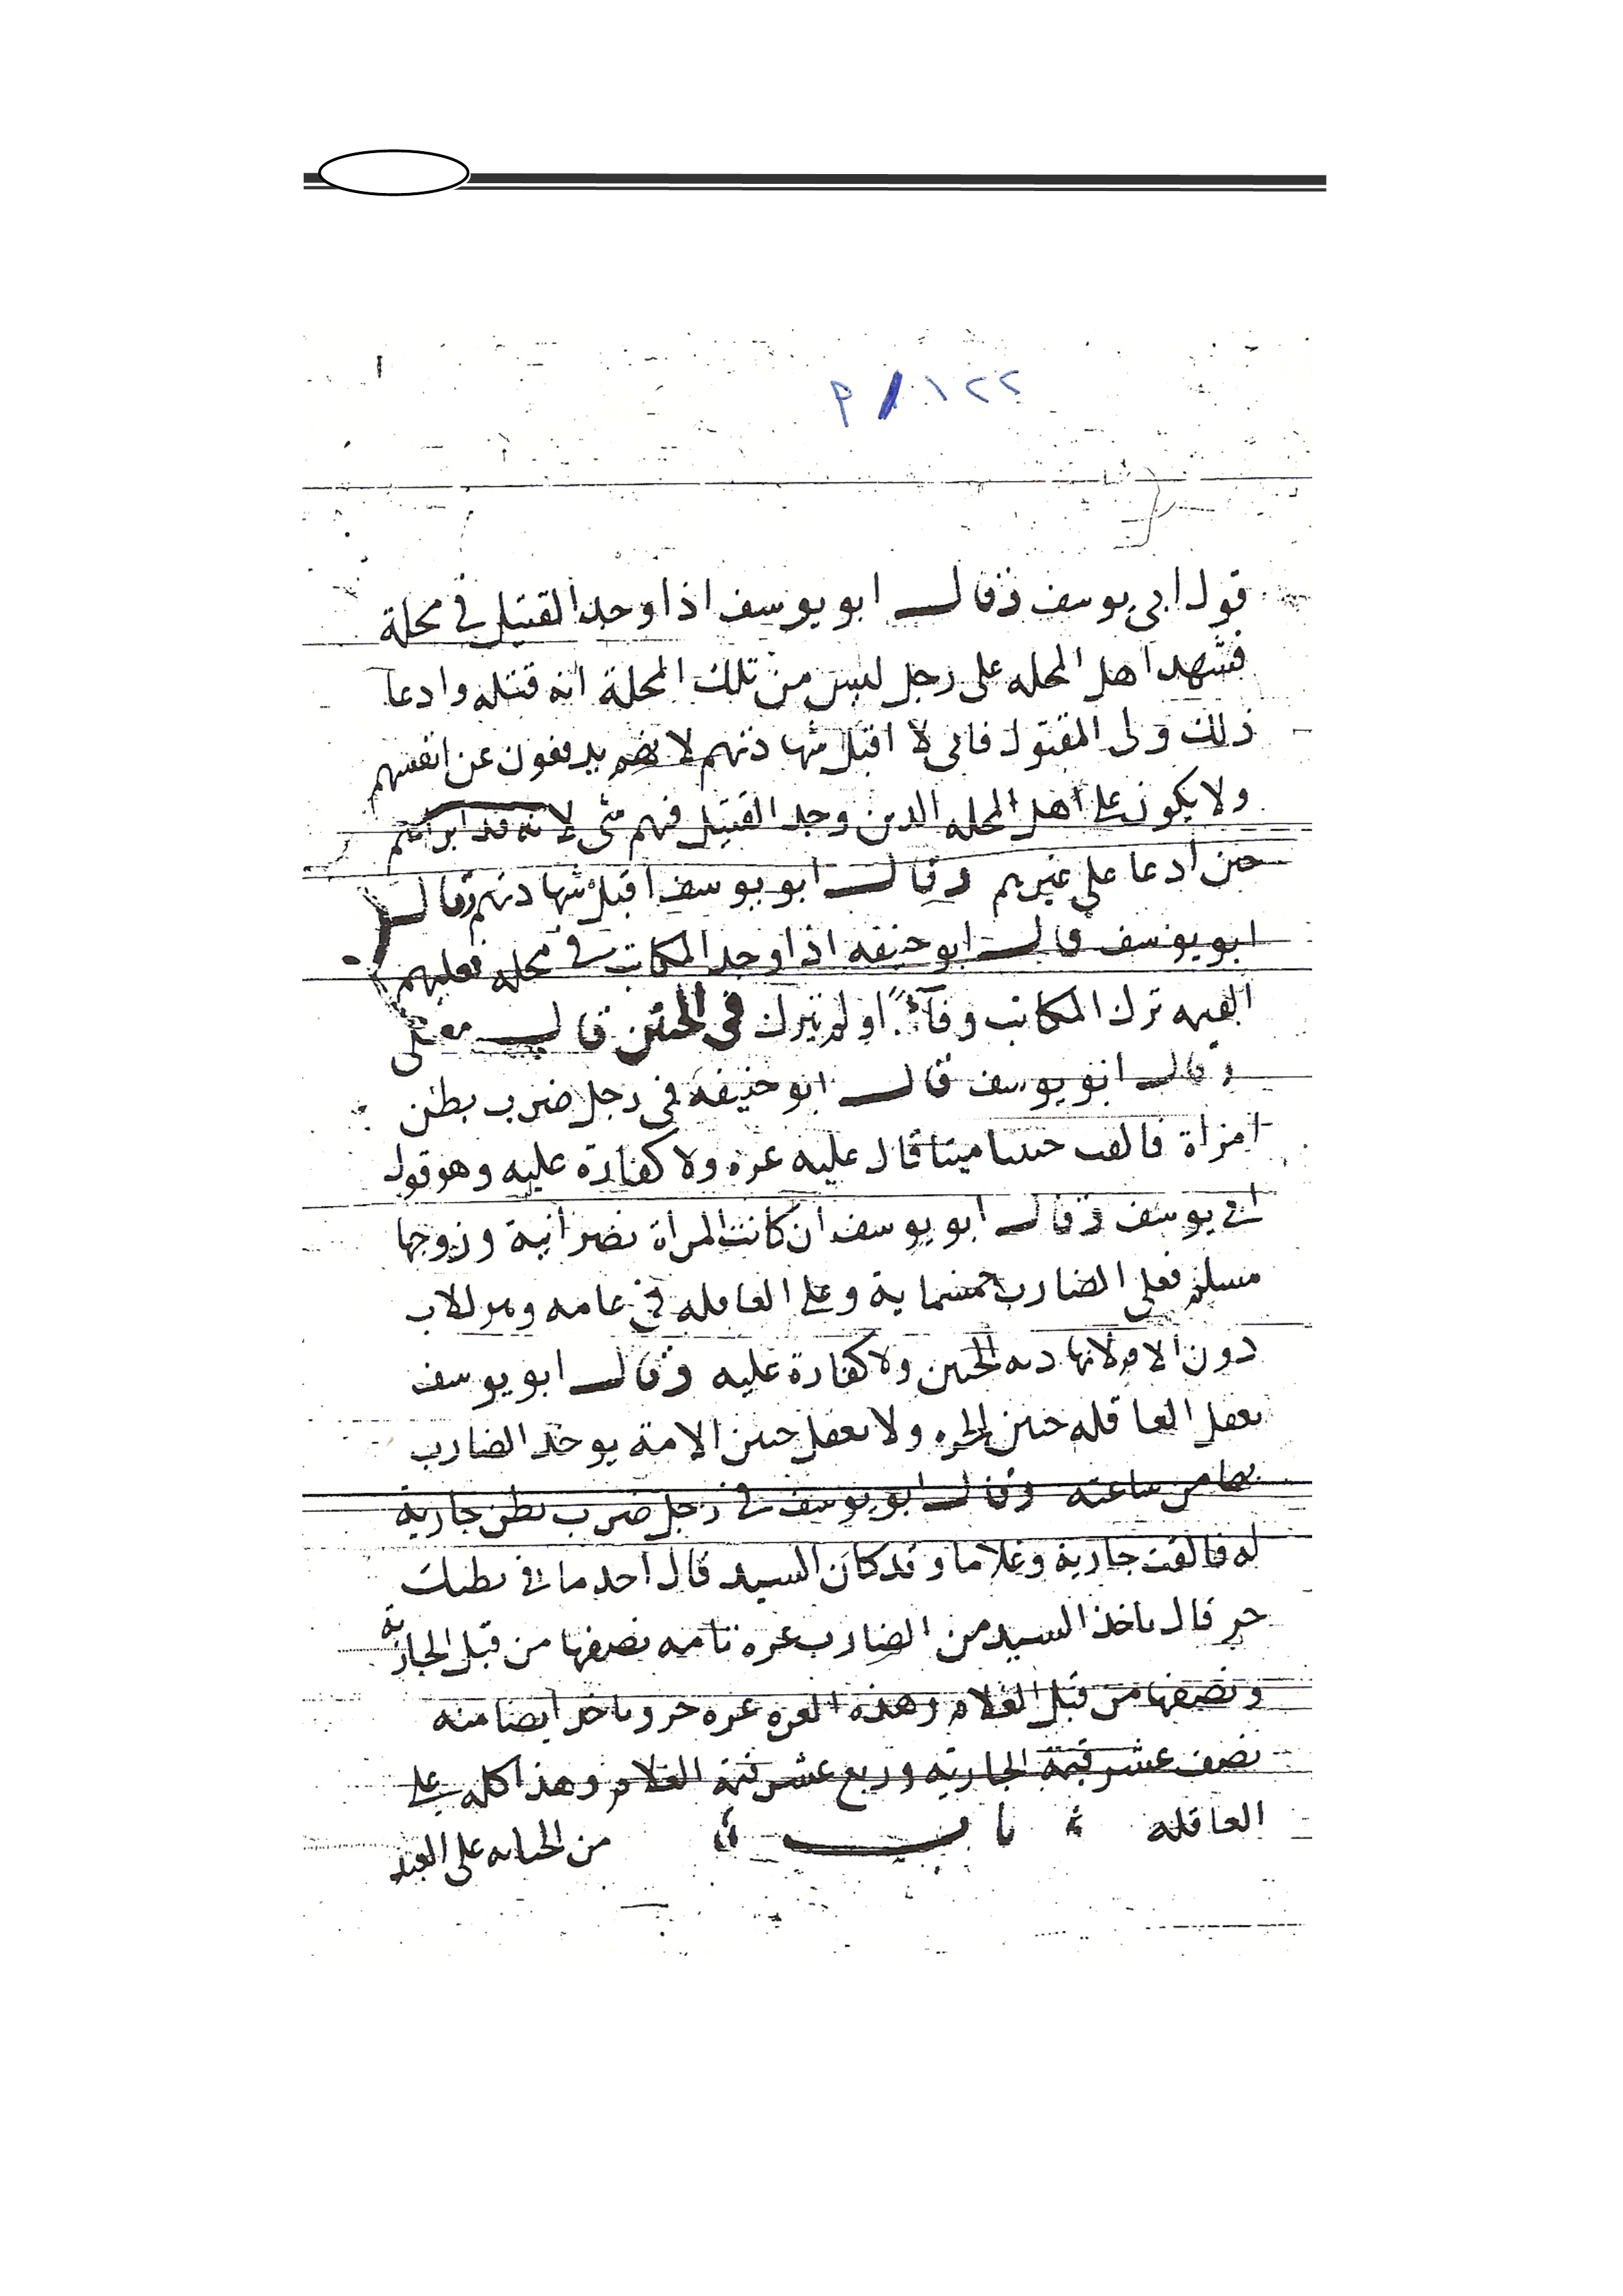 ١٢٢ / م
قول ابى يوسف وقال ابو يوسف اذا وجد القتيل فى محلة
فشهد اهل المحله على رجل ليس من تلك المحلة انه قتله وادعا
ذلك ولى المقتول فانى لا اقبل شهادتهم لانهم يدفعون عن انفسهم
ولا يكون على اهل المحله الدين وجد القتيل فيهم شى لانه قد ابراهم
حين ادعا على غيرهم وقال ابو يوسف اقبل شهادتهم وقال
ابو يوسف قال ابو حنيفه اذا وجد المكاتب فى محله فعليهم
القيمه ترك المكاتب وفآءً او لم يترك فى الجنين قال معلى
وقال ابو يوسف قال ابو حنيفه فى رجل ضرب بطن
امراة فالقت جنينا ميتا قال عليه غره ولا كفارة عليه وهو قول
ابى يوسف وقال ابو يوسف ان كانت المراة نصرانية وزوجها
مسلم فعلى الضارب خمسماية وعلى العاقله فى عامه وهو للاب
دون الام لانها ديه الجنين ولا كفارة عليه وقال ابو يوسف
تعقل العاقله جنين الحره ولا تعقل جنين الامة يوخذ الضارب
بها من ساعته وقال ابو يوسف فى رجل ضرب بطن جارية
له فالقت جارية وغلاما وقد كان السيد قال احد ما فى بطنك
حر قال ياخذ السيد من الضارب غره تامه نصفها من قبل الجارية
ونصفها من قبل الغلام وهذه الغره غره حر وياخذ ايضا منه
نصف عشر قيمة الجاريه وربع عشر قيمة الغلام وهذا كله على
العاقله باب من الجنايه على العبد